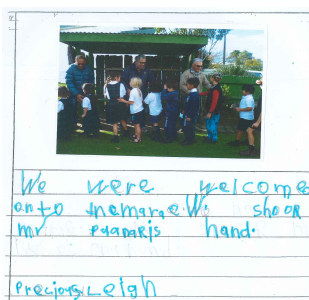 We were welcome
onto themarae. We shook
mr puanaris hand.
Precious Leigh